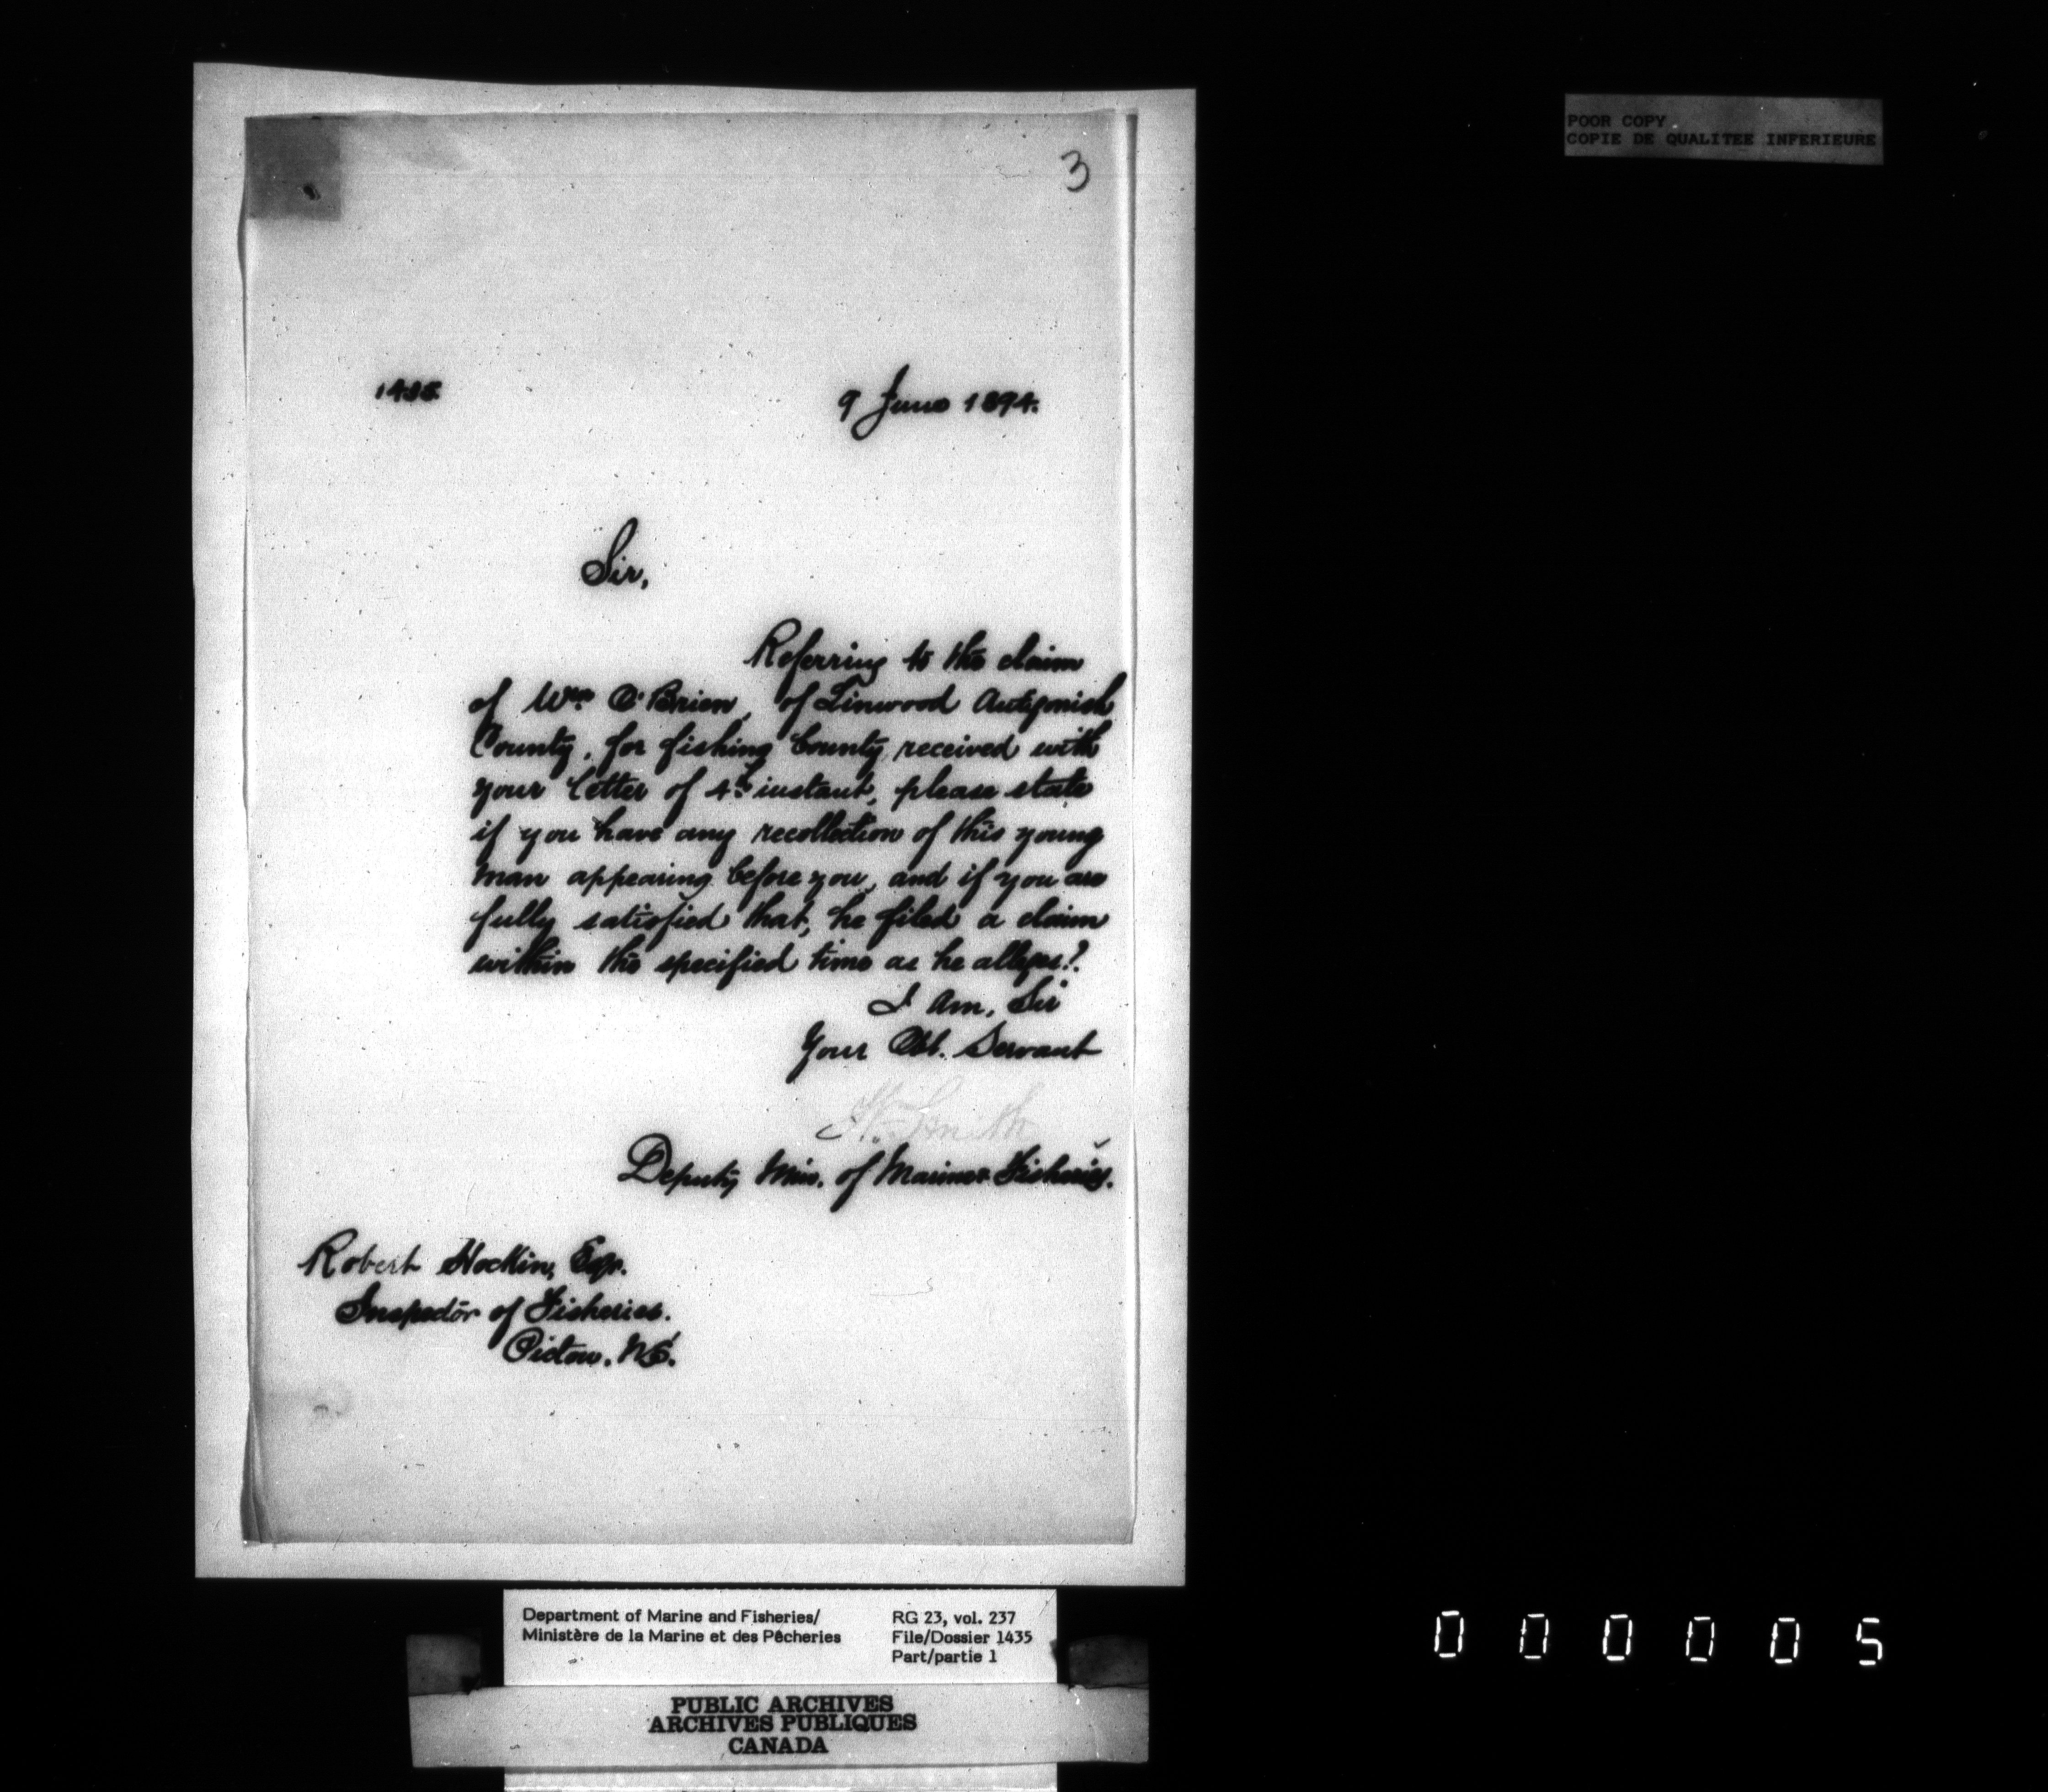 POOR COPY
COPIE DE QUALITEE INFERIEURE
3
1435.
9 June 1894.
Sir,
Referring to the claim
of Wm O'Brien, of Linwood Antigonish
County, for fishing bounty received with
your letter of 4th instant, please state
if you have any recollection of this young
man appearing before you, and if you are
fully satisfied that, he filed a claim
within the specified time as he alleges?.
I am, Sir
Your Obt. Servant
Wm Smith
Deputy Min. of Marine & Fisheries.
Robert Hockin, Esqr.
Inspector of Fisheries.
Pictou. N.S.
Department of Marine and Fisheries/
Ministère de la Marine et des Pêcheries
RG 23, vol. 237
File/Dossier 1435
Part/partie 1
PUBLIC ARCHIVES
ARCHIVES PUBLIQUES
CANADA
000005